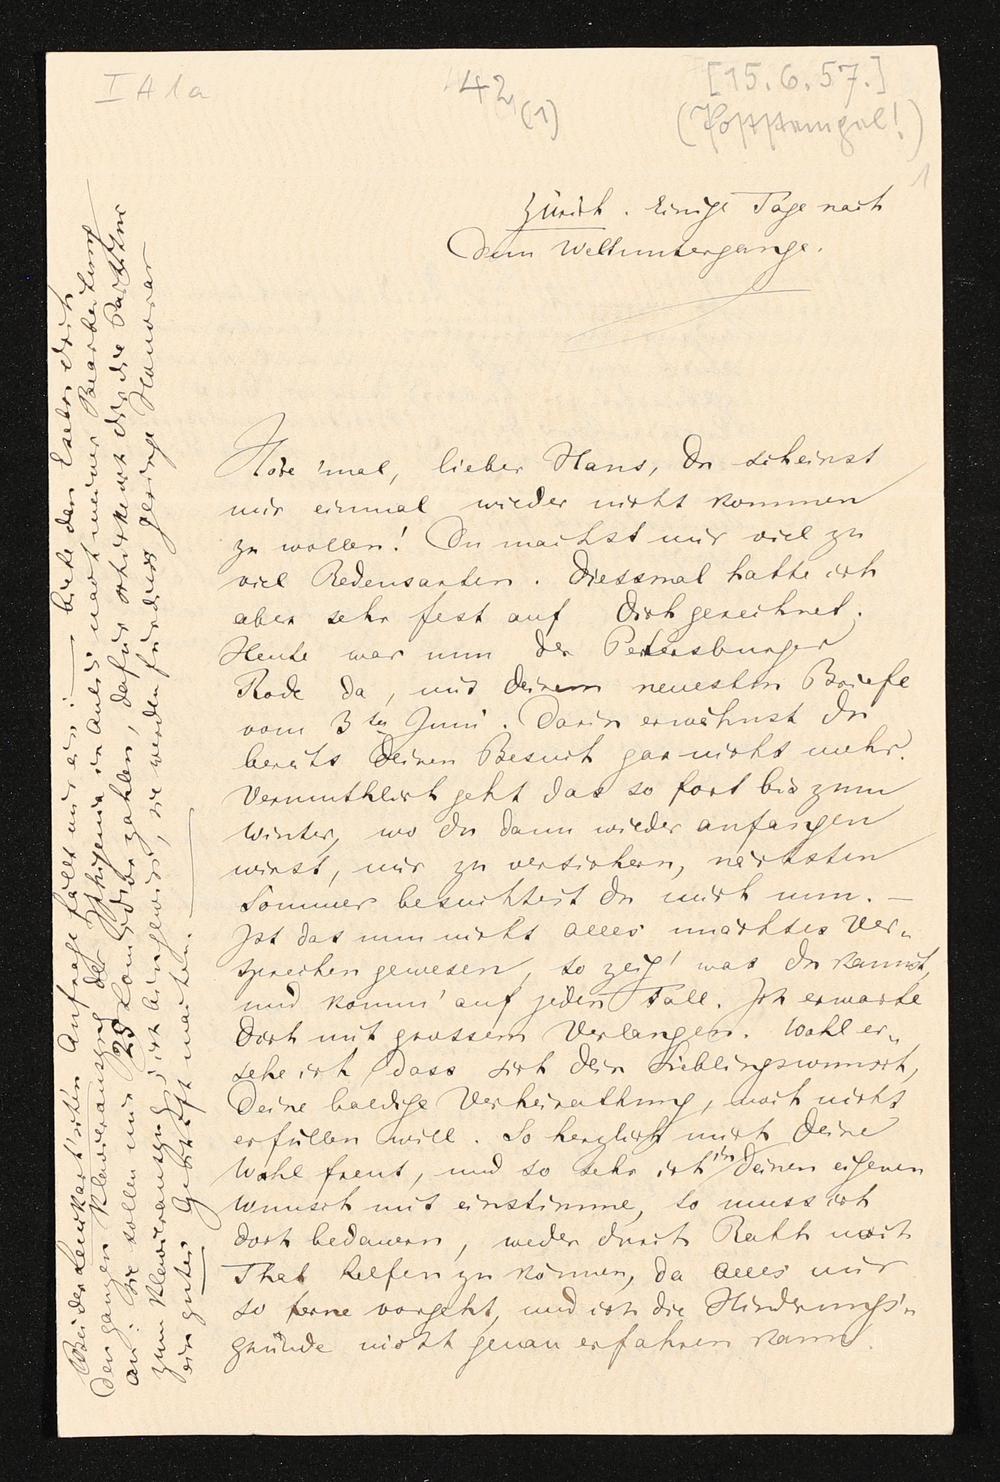 I A 1 a
42 (1)
[15.6.57.]
(Poststempel!)
1
Zürich. Einige Tage nach
dem Weltuntergange.
Höre 'mal, lieber Hans, Du scheinst
mir einmal wieder nicht kommen
zu wollen! Du machst mir viel zu
viel Redensarten. Diessmal hatte ich
aber sehr fest auf Dich gerechnet.
Heute war nun der Petersburger
Rode da, mit deinem neuesten Briefe
vom 3ten Juni. Darin erwähnst Du
bereits Deinen Besuch gar nicht mehr.
Vermuthlich geht das so fort bis zum
Winter, wo du dann wieder anfangen
wirst, mir zu versichern, nächsten
Sommer besuchtest Du mich nun. —
Ist das nun nicht alles unächtes Ver-
sprechen gewesen, so zeig' was Du kannst,
und komm' auf jeden Fall. Ich erwarte
Dich mit grossem Verlangen. Wohl er-
sehe ich, dass sich dein Lieblingswunsch,
Deine baldige Verheirathung, noch nicht
erfüllen will. So herzlich mich Deine
Wahl freut, und so sehr ich in Deinen eigenen
Wunsch mit einstimme, so muss ich
doch bedauern, weder durch Rath noch
That helfen zu können, da alles mir
so ferne vorgeht, und ich die Hinderungs-
gründe nicht genau erfahren kann.
Bei der Leuckart'schen Anfrage fällt mir ein: — biete den Eseln doch
den ganzen Klavierauszug der Iphigenia in Aulis nach meiner Bearbeitung
an: Sie sollen mir 25 Louisd'or zahlen, dafür schicke ich Dir die Partitur
zum Klavierauszug; ich bin gewiss, sie werden für diess geringe Honorar
ein gutes Geschäft machen. —